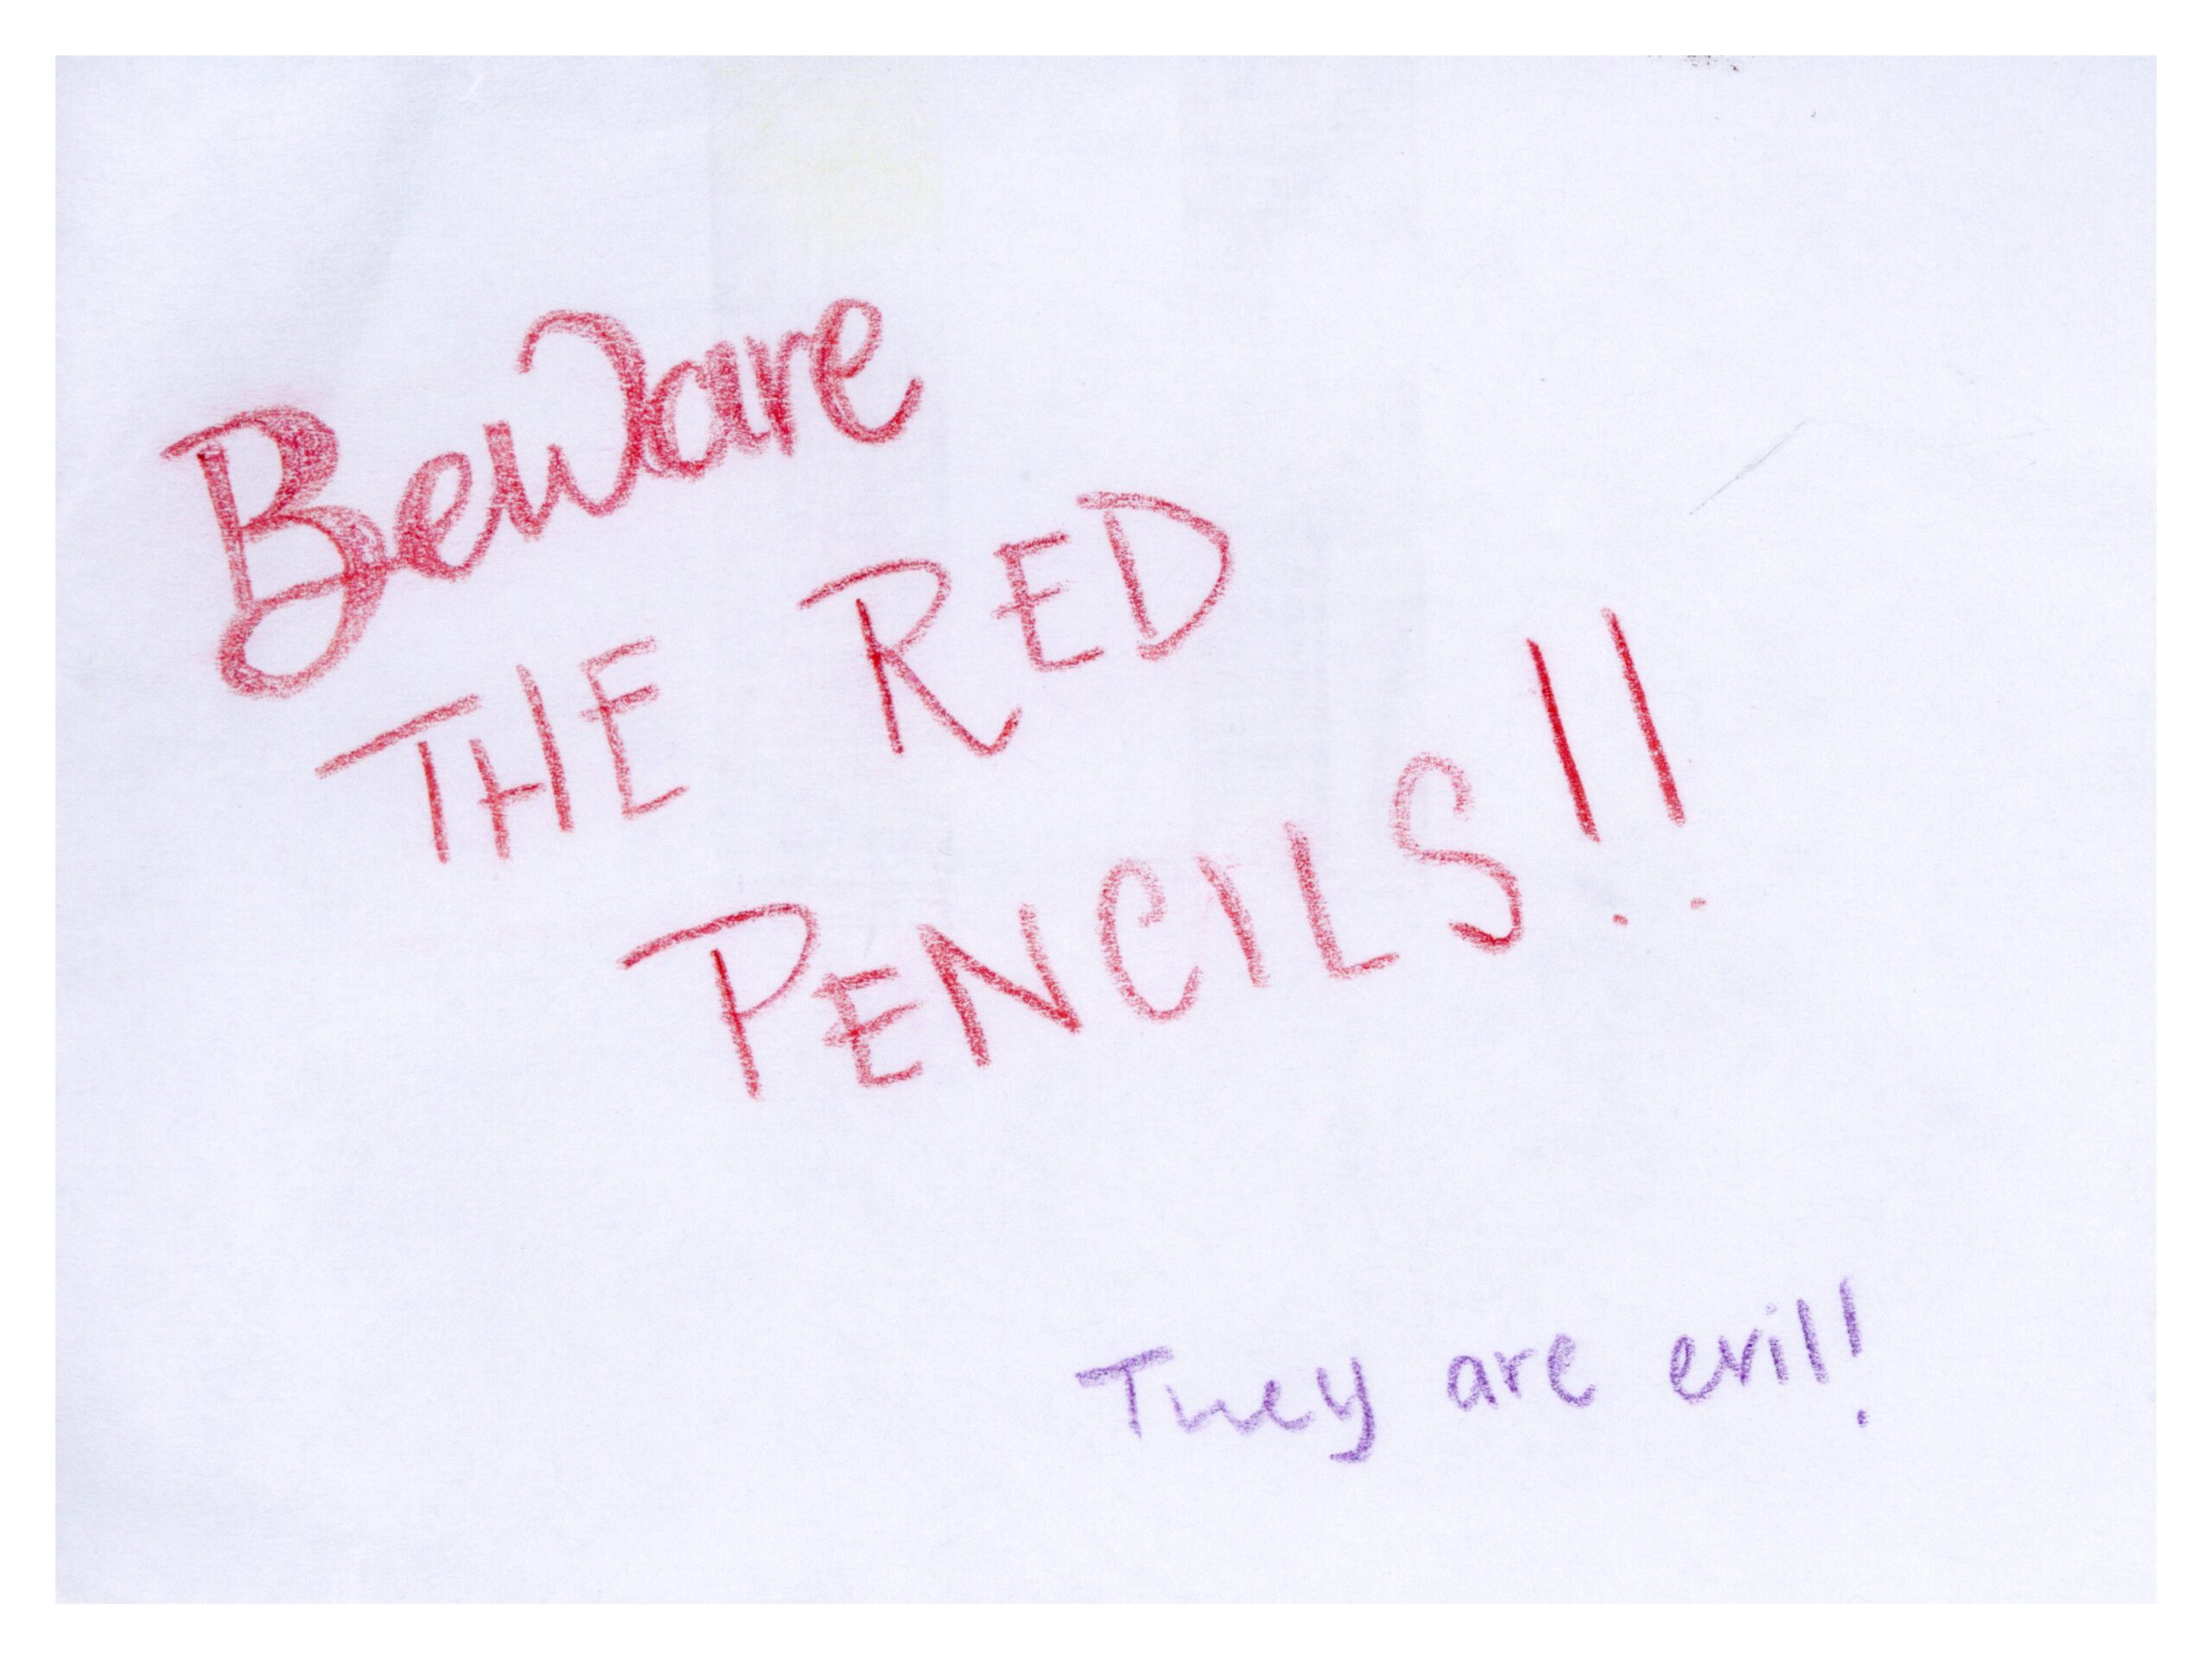 Beware
THE RED
PENCILS!!
They are evil!